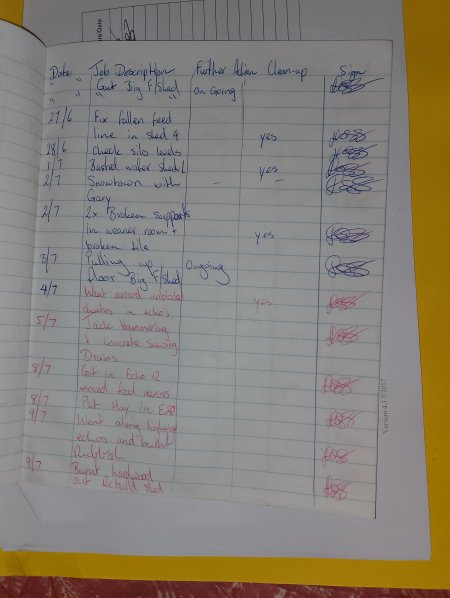 Date Job Description Further Action Clean-up Sign
" " Gut Big F/Shed on Going
" " " "
27/6 Fix fallen feed
line in shed 4 yes
28/6 Check silo levels
1/7 Busted water shed 2 yes
2/7 Snowtown with - -
Gary
2/7 2x Broken supports
In weaner room + yes
broken tile
3/7 Pulling up ongoing
floor Big F/shed
4/7 Went around unblocked yes
in echos
5/7 Jack Hammering
+ Concrete sawing
Drains
8/7 Got in Echo 12
moved feed across
8/7 Put Hay in
9/7 Went along highway
echos and burnt
Rubbish
9/7 Burnt hardwood
out Rebuild shed
Version 4.1 7/2017